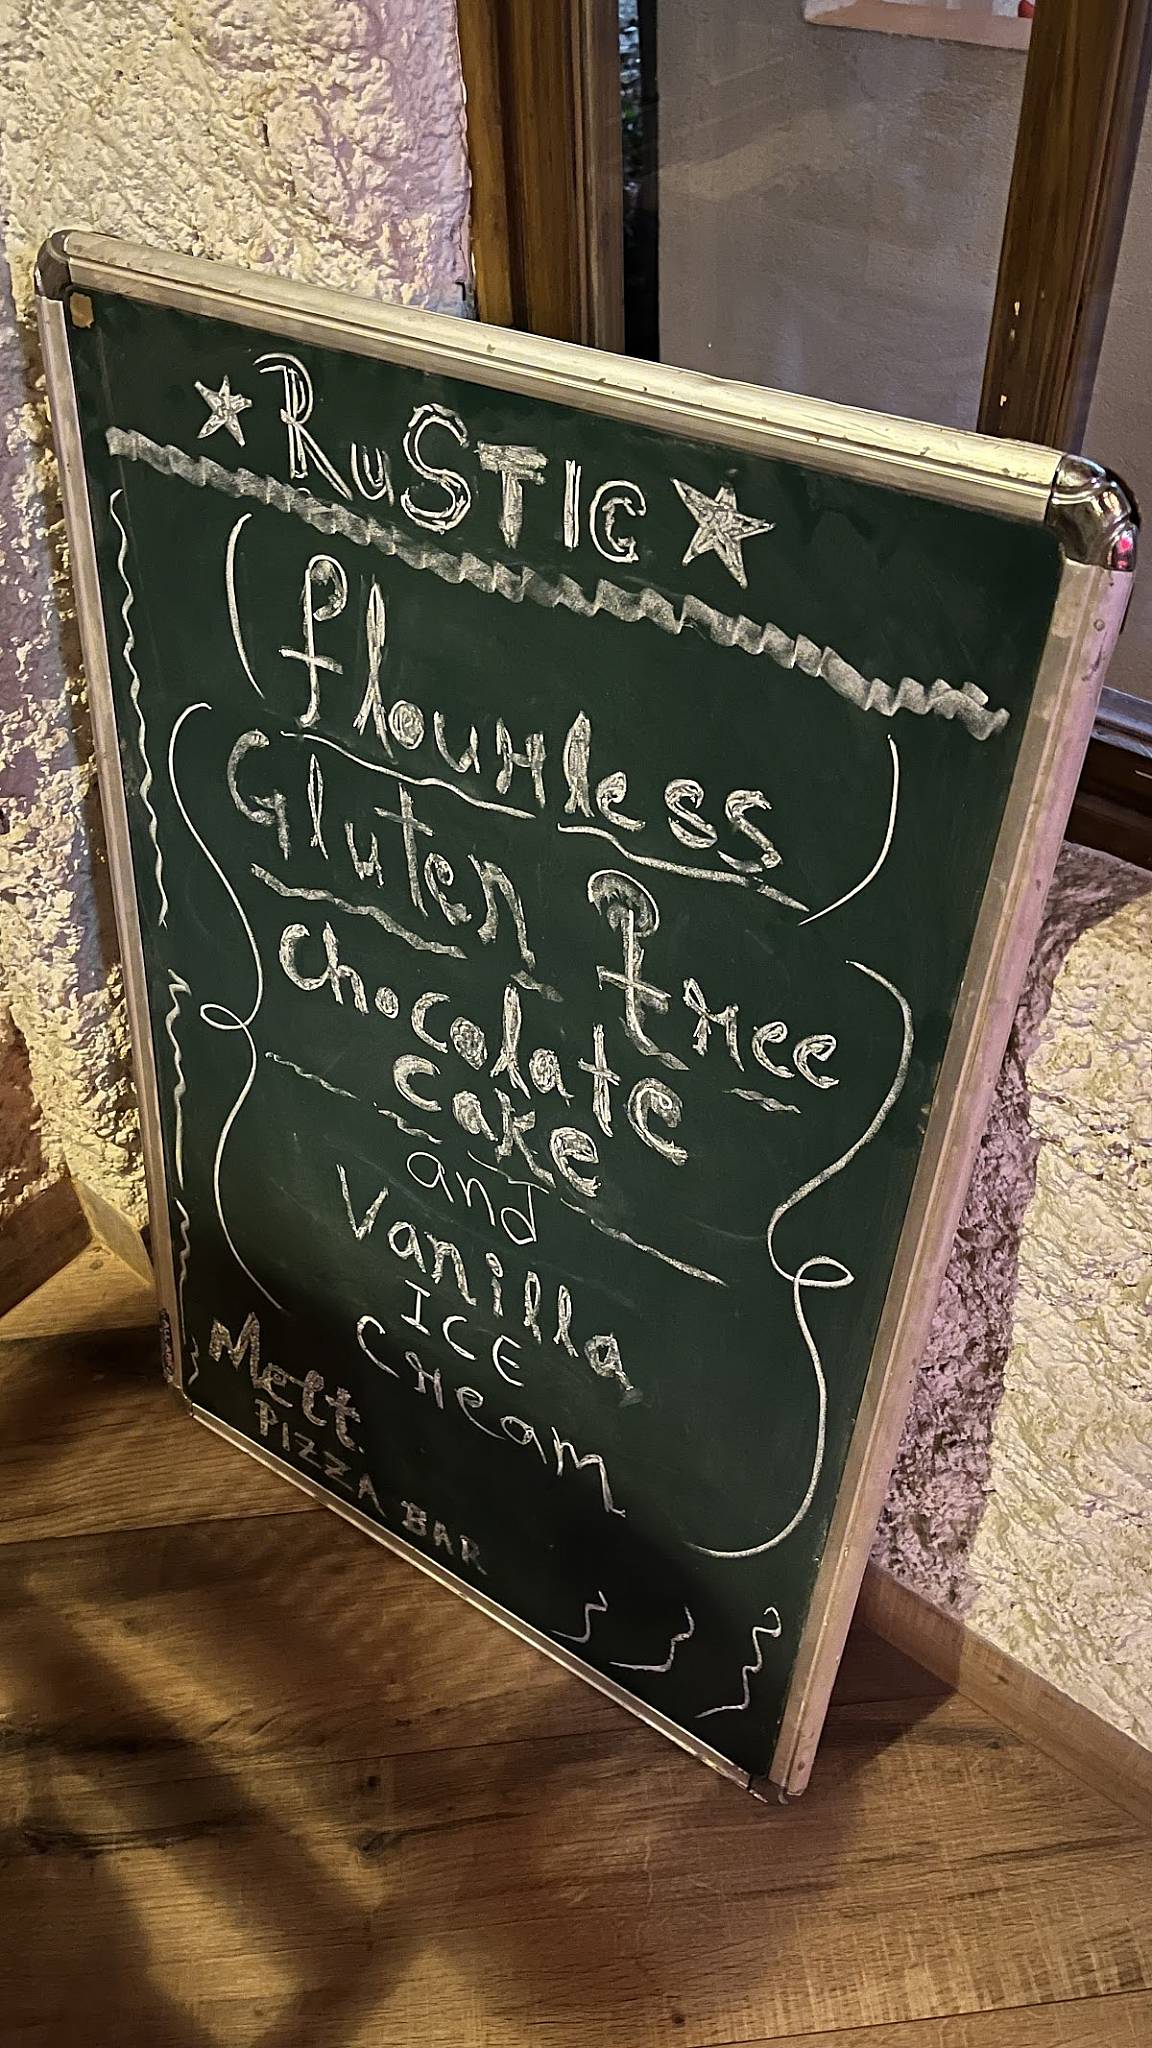 RuSTIC
flourless
Gluten Free
chocolate
cake
and
Vanilla
ICE
cream
Melt.
PIZZA BAR